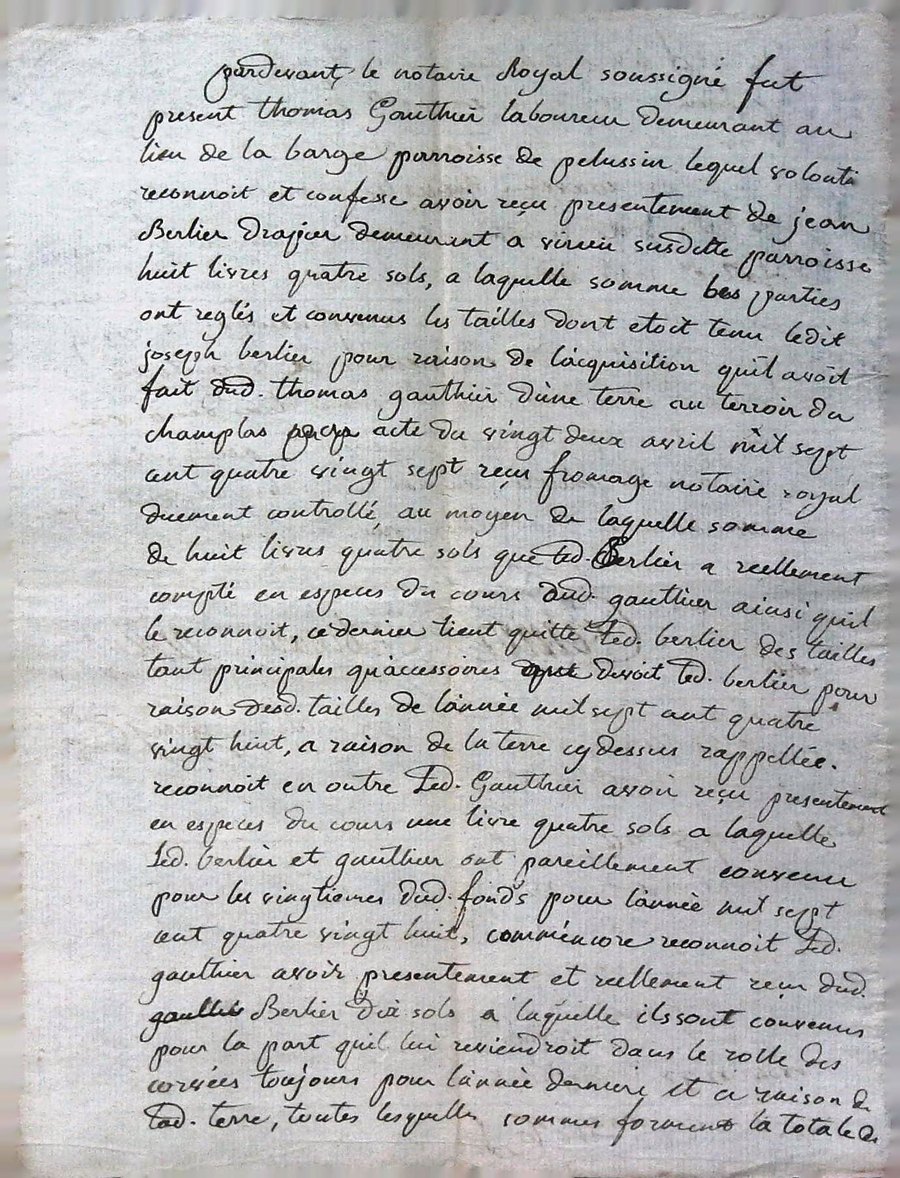 pardevant le notaire Royal soussigné fut
present thomas Gauthier laboureur demeurant au
lieu de la barge parroisse de pelussin lequel volonti
reconnoit et confesse avoir reçu presentement de jean
Berlier drapier demeurant a virieu susditte parroisse
huit livres quatre sols, a laquelle somme les parties
ont reglés et convenus les tailles dont etoit tenu ledit
joseph berlier pour raison de l'acquisition qu'il avoit
fait dud. thomas gauthier d'une terre au terroir du
champlas acte du vingt deux avril mil sept
cent quatre vingt sept reçu fromage notaire royal
duement controllé, au moyen de laquelle somme
de huit livres quatre sols que led. Berlier a reellement
compté en especes du cours aud. gauthier ainsi quil
le reconnoit, ce dernier tient quitte led. berlier des tailles
tant principales qu'accessoires que devoit led. berlier pour
raison desd. tailles de l'année mil sept cent quatre
vingt huit, a raison de la terre cy dessus rappellée.
reconnoit en outre led. Gauthier avoir reçu presentement
en especes du cours une livre quatre sols a laquelle
led. berlier et gauthier ont pareillement convenu
pour les vingtiemes dud. fonds pour l'année mil sept
cent quatre vingt huit, comme encore reconnoit led.
gauthier avoir presentement et reellement reçu dud.
Berlier dix sols a laquelle ils sont convenus
pour la part quil lui reviendroit dans le rolle des
corvées toujours pour l'année derniere et a raison de
lad. terre, toutes lesquelles sommes forment la totale de